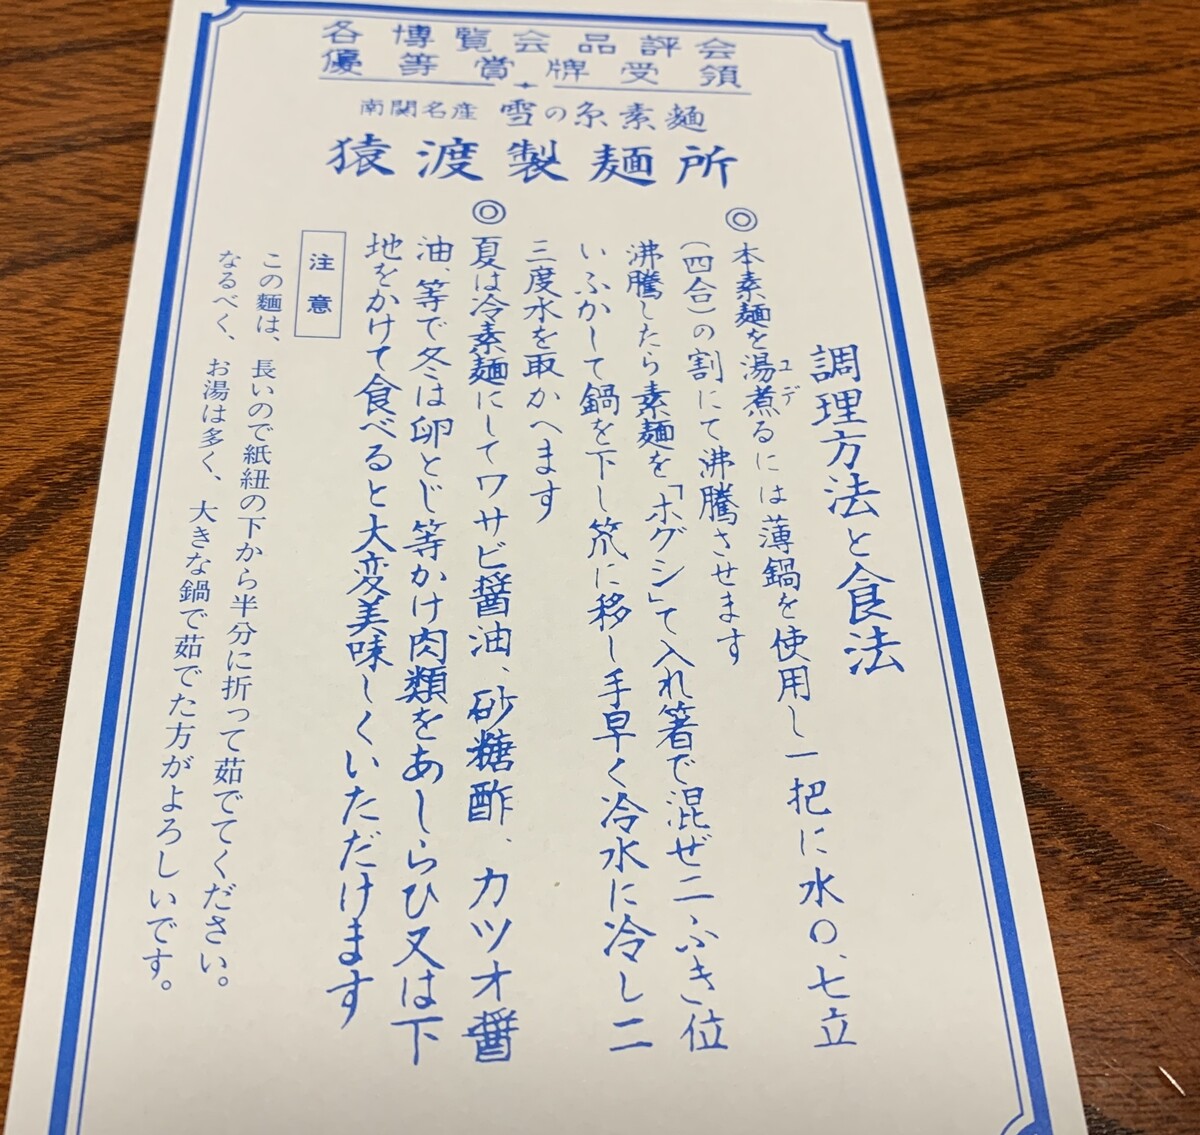 各博覧会品評会
優等賞牌受領
南関名産 雪の糸素麺
猿渡製麺所
調理方法と食法
◎本素麺を湯煮るには薄鍋を使用し一把に水〇、七立
ユデ
(四合)の割にて沸騰させます
沸騰したら素麺を「ホグシ」て入れ箸で混ぜ二ふき位
いふかして鍋を下し笊に移し手早く冷水に冷し二
三度水を取かへます
◎夏は冷素麺にしてワサビ醤油、砂糖酢、カツオ醤
油、等で冬は卵とじ等かけ肉類をあしらひ又は下
地をかけて食べると大変美味しくいただけます
注意
この麺は、長いので紙紐の下から半分に折って茹でてください。
なるべく、お湯は多く、大きな鍋で茹でた方がよろしいです。